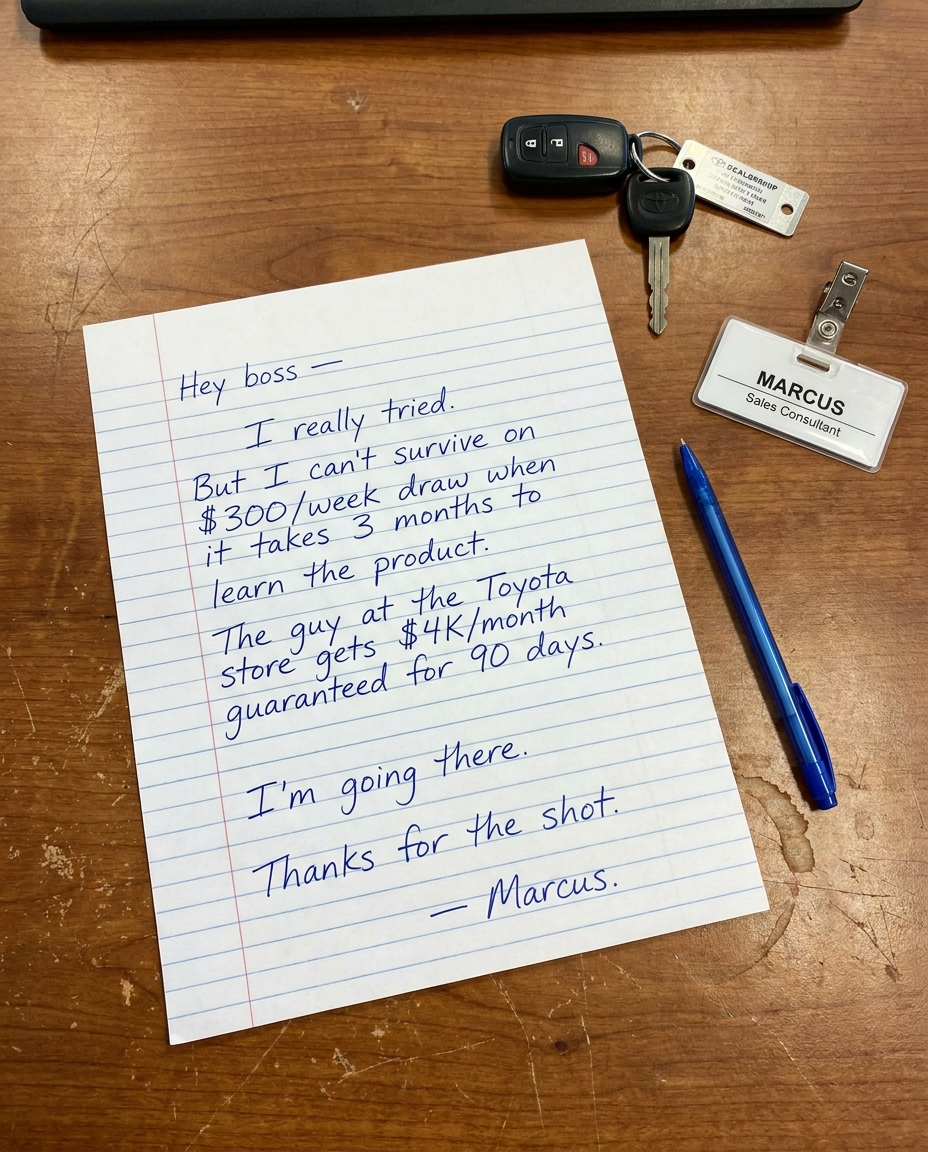 DEALGROUP
MARCUS
Sales Consultant
Hey boss —
I really tried.
But I can't survive on
$300/week draw when
it takes 3 months to
learn the product.
The guy at the Toyota
store gets $4K/month
guaranteed for 90 days.
I'm going there.
Thanks for the shot.
— Marcus.